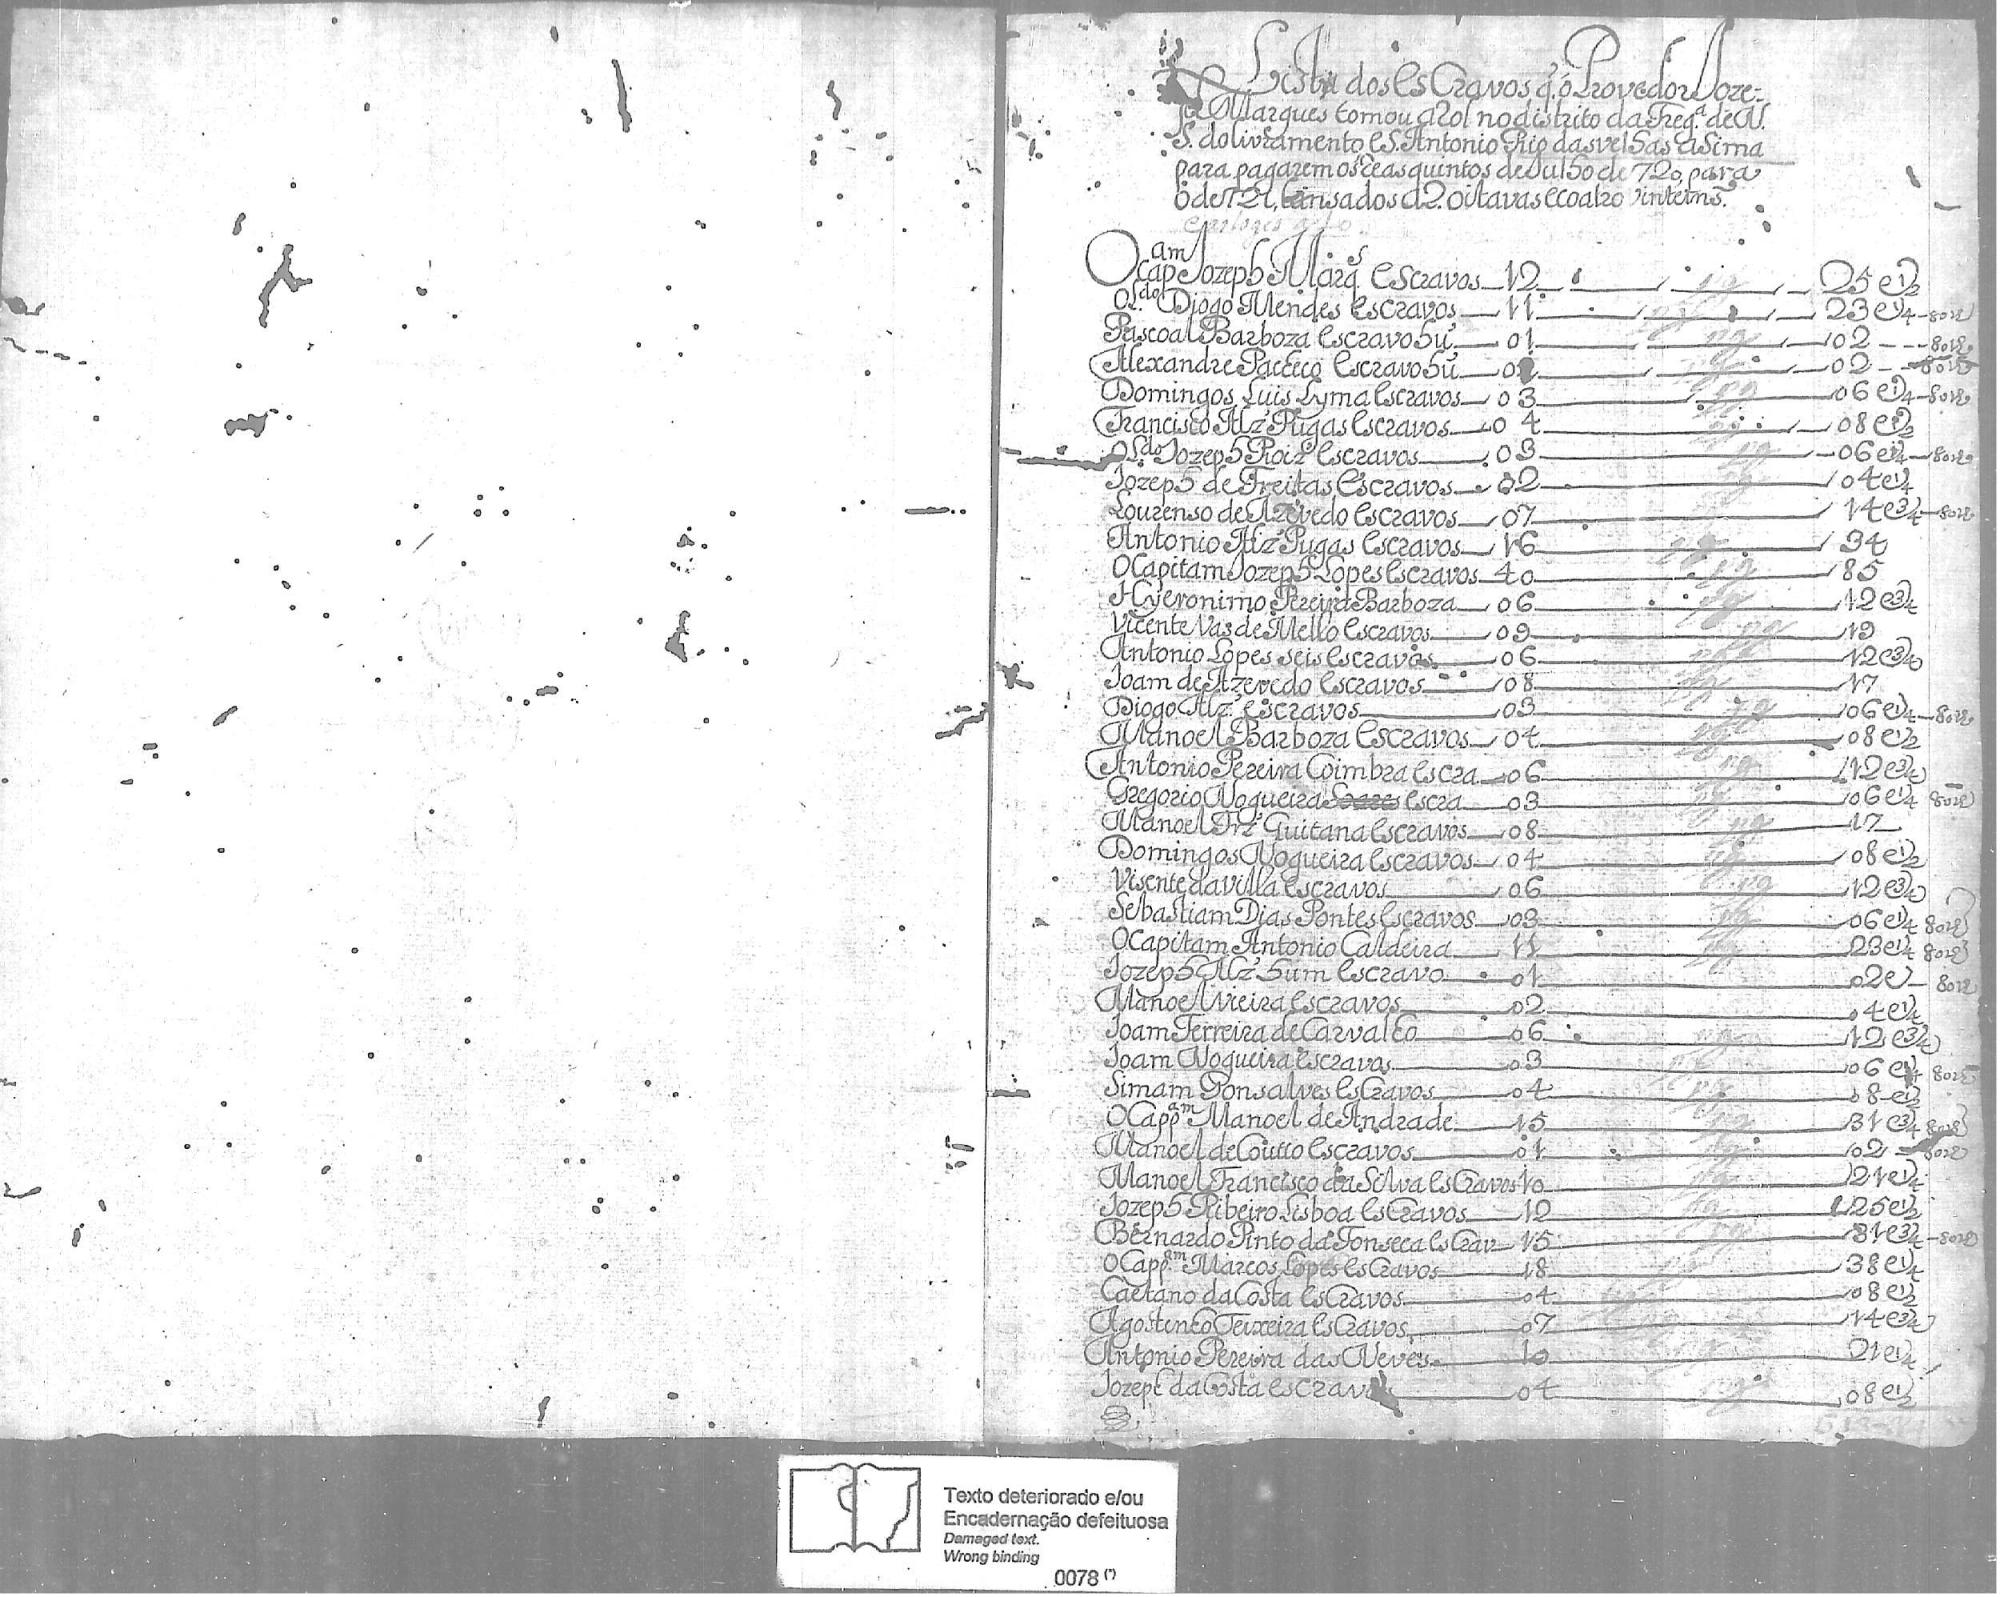 Lista dos esCravos q̃ o Provedor Joze-
ph Marques tomou a Rol no distrito da Freg.ª de N.
S. do livramento e S. Antonio Rio das velhas aSima
para pagarem os Reas quintos de Julho de 720 para
o de 721, Lansados a 2. oitavas e coatro vinteins.
O Cap.am Jozeph Marq.s escravos 12 pg 25 e 1/2
O L.do Diogo Mendes escravos 11 pg 23 e 1/4
Pascoal Barboza escravo hũ 01 pg 02
Alexandre Pacheco escravo hũ 01 pg 02
Domingos Luis Lyma escravos 03 pg 06 e 1/4
Francisco Alz' Pugas escravos 04 pg 08 e 1/2
O L.do Jozeph Roiz' escravos 03 pg 06 e 1/4
Jozeph de Freitas escravos 02 pg 04 e 1/4
Lourenso de Azevedo escravos 07 pg 14 e 3/4
Antonio Alz' Pugas escravos 16 pg 34
O Capitam Jozeph Lopes escravos 40 pg 85
Hyeronimo Pereira Barboza 06 pg 12 e 3/4
Vicente Vas de Mello escravos 09 pg 19
Antonio Lopes seis escravos 06 pg 12 e 3/4
Joam de Azevedo escravos 08 pg 17
Diogo Alz' escravos 03 pg 06 e 1/4
Manoel Barboza escravos 04 pg 08 e 1/2
Antonio Pereira Coimbra escra 06 pg 12 e 3/4
Gregorio Nogueira escra 03 pg 06 e 1/4
Manoel Frz' Quitana escravos 08 pg 17
Domingos Nogueira escravos 04 pg 08 e 1/2
Visente da villa escravos 06 pg 12 e 3/4
Sebastiam Dias Pontes escravos 03 pg 06 e 1/4
O Capitam Antonio Caldeira 11 pg 23 e 1/4
Jozeph Alz' hum escravo 01 02 e
Manoel Vieira escravos 02 4 e 1/4
Joam Ferreira de Carvalho 06 pg 12 e 3/4
Joam Nogueira escravos 03 pg 06 e 1/4
Simam Gonsalves esCravos 04 pg 8 e 1/2
O Capp.am Manoel de Andrade 15 pg 31 e 3/4
Manoel de Coutto escravos 01 pg 02
Manoel Francisco da Silva esCravos 10 pg 21 e 1/4
Jozeph Ribeiro Lisboa esCravos 12 pg 25 e 1/2
Bernardo Pinto da Fonseca esCrav 15 pg 31 e 3/4
O Capp.am Marcos Lopes esCravos 18 pg 38 e 1/4
Caetano da Costa esCravos 04 pg 08 e 1/2
Agostinho Teixeira esCravos 07 pg 14 e 3/4
Antonio Pereira das Neves 10 pg 21 e 1/4
Jozeph da Costa escravos 04 pg 08 e 1/2
Texto deteriorado e/ou
Encadernação defeituosa
Damaged text.
Wrong binding
0078 (*)